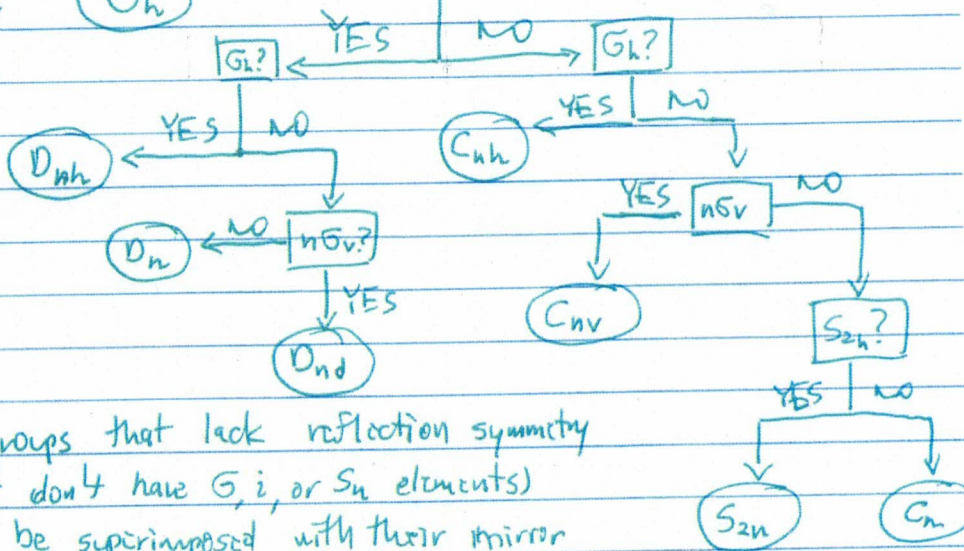 Oh
YES NO
σh? σh?
YES NO
YES NO
Cnh
Dnh
YES nσv NO
Dn NO nσv?
YES
Cnv
S2n?
Dnd
YES NO
roups that lack reflection symmetry
don't have σ, i, or Sn elements)
S2n Cn
be superimposed with their mirror